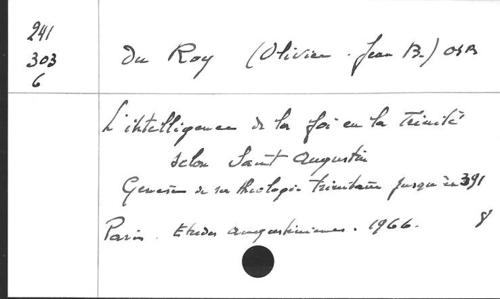 241
303
6
Du Roy (Olivier. Jean B.) OSB
L'intelligence de la foi en la Trinité
selon Saint Augustin
Genèse de sa théologie trinitaire jusqu'en 391
Paris. Etudes augustiniennes. 1966. 8